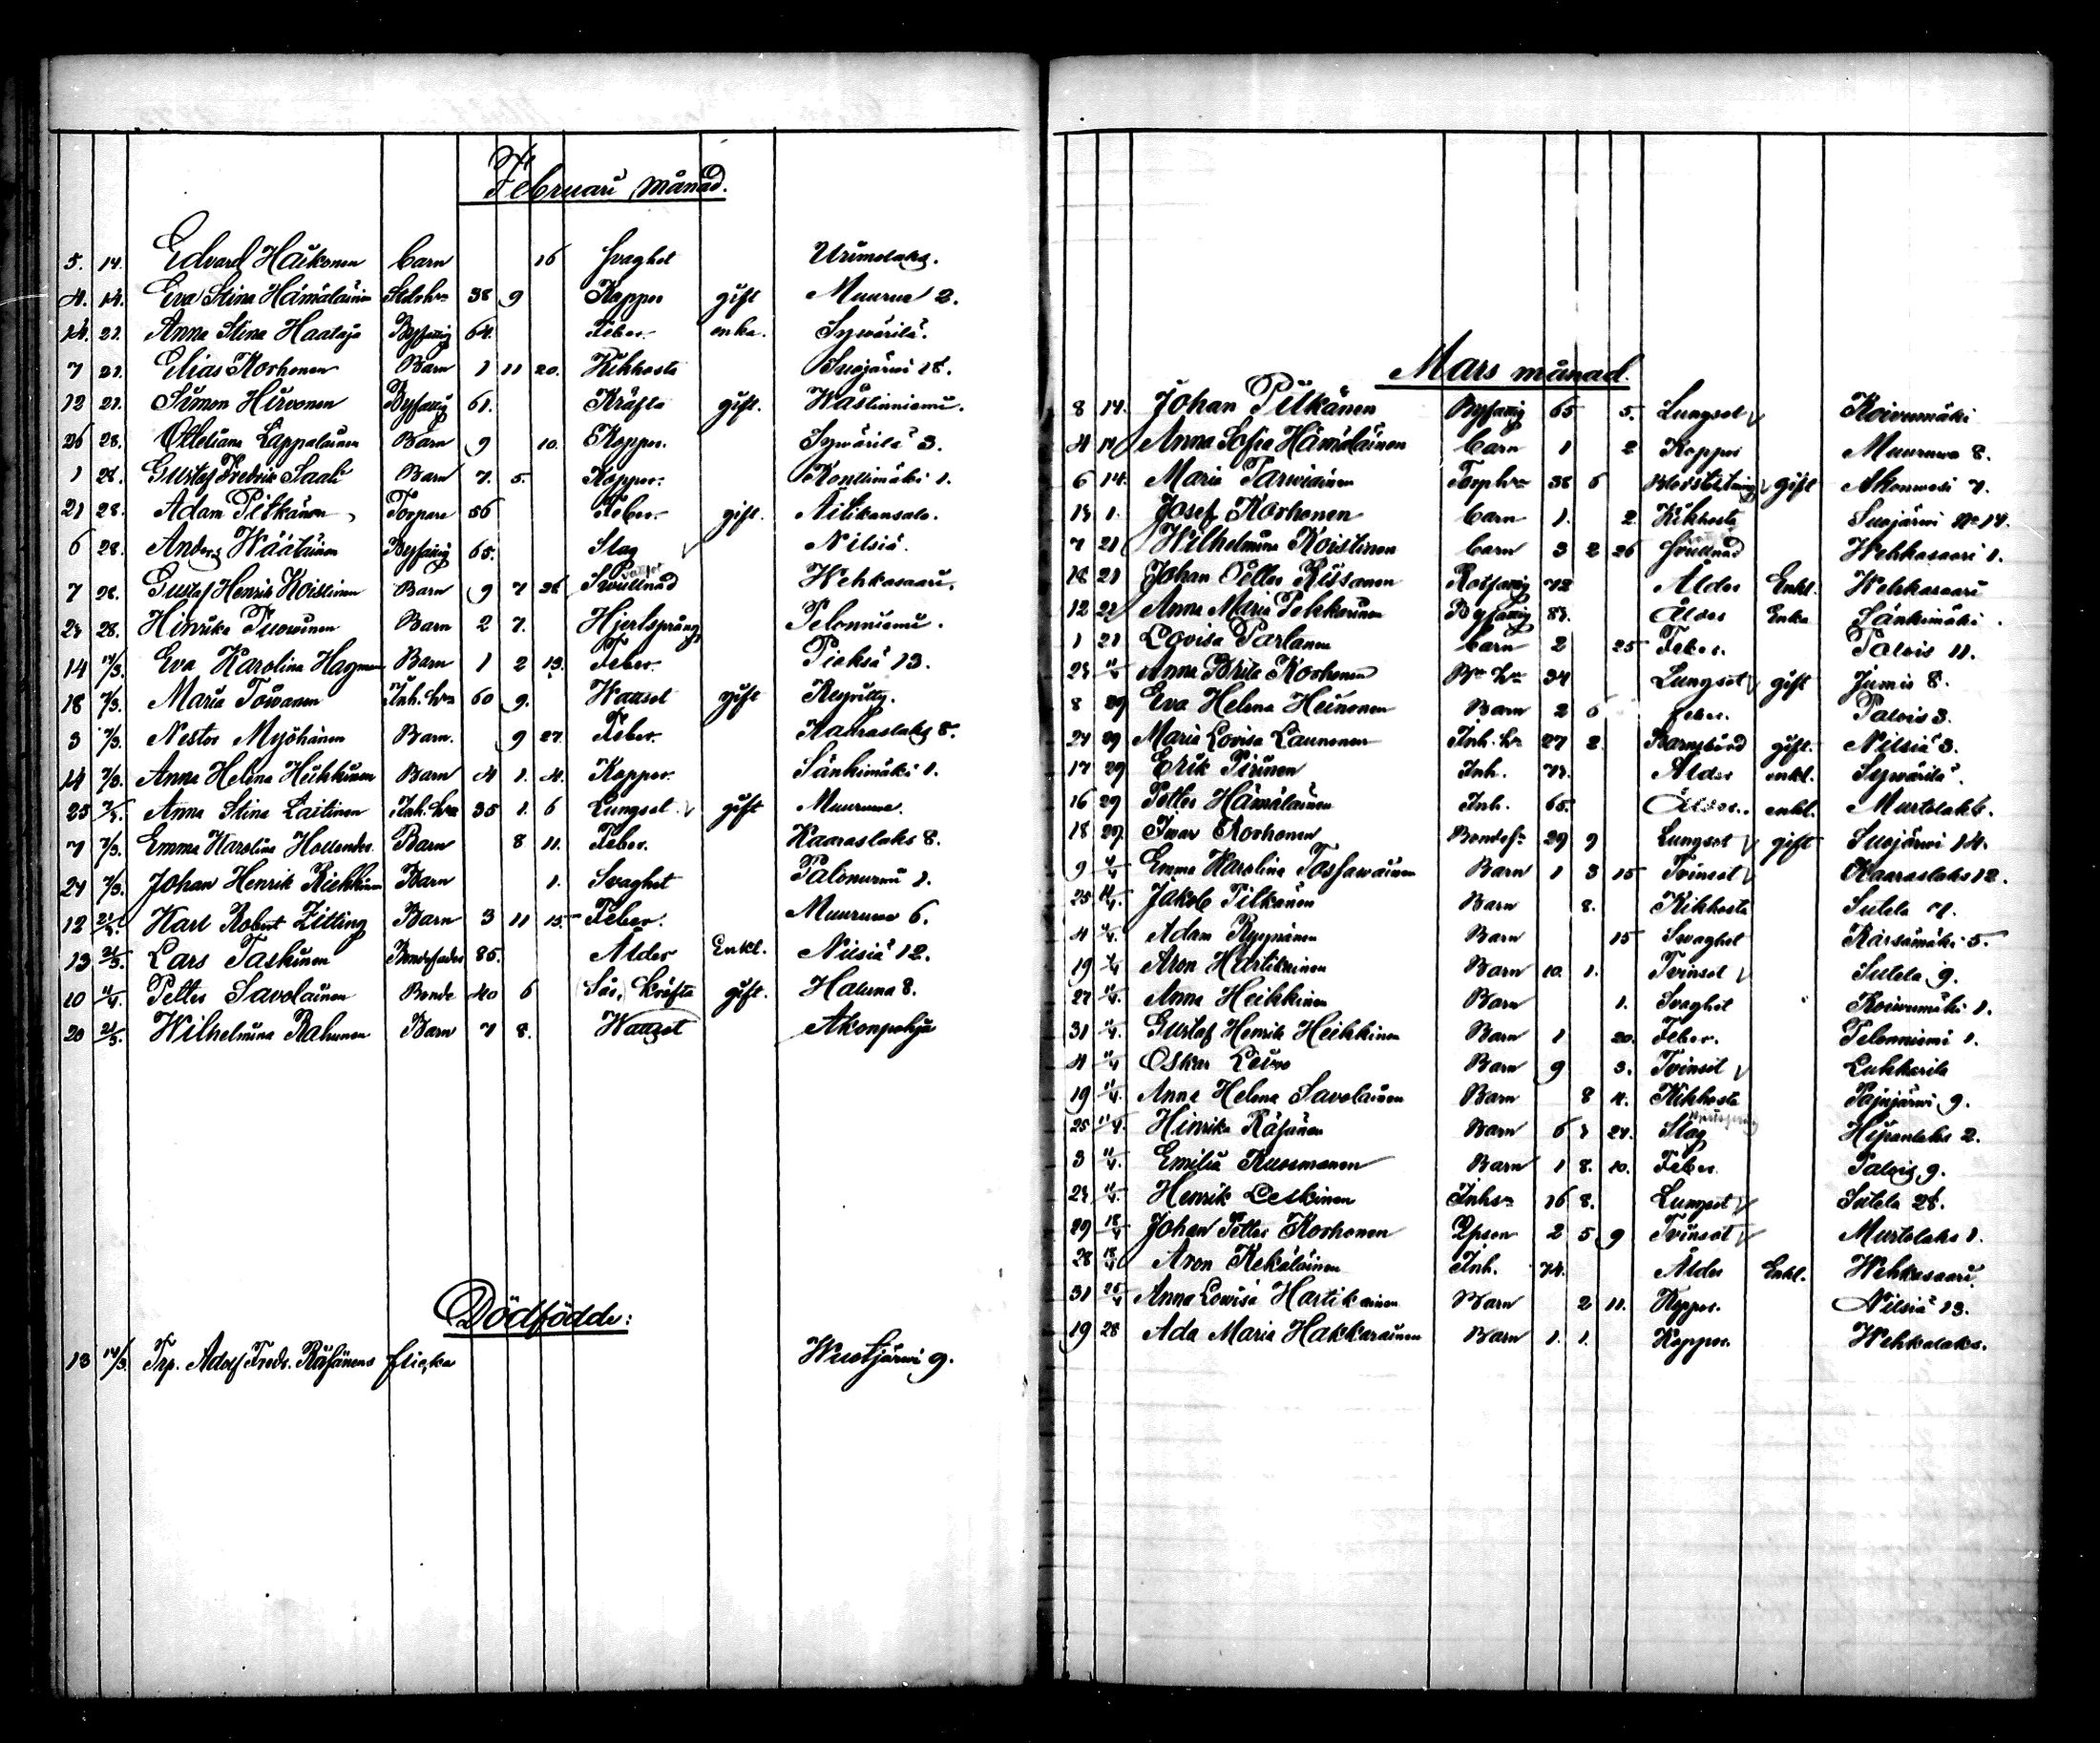 Februari månad.
5. 14. Edvard Haikonen barn 16 svaghet Urimolaks.
4. 14. Eva Stina Hämäläinen 38 9 Koppor gift Muuruv 2.
14. 21. Anna Stina Haataja Byfattig 64. Feber. enka. Sywärilä.
7 21. Elias Korhonen Barn 1 11 20. Kikhosta Suojärwi 18.
12 21. Simon Hirvonen Byfattig 61. Kräfta gift. Wästinniemi.
26 28. Otteliana Lappalainen Barn 9 10. Koppor. Sywärilä 3.
1 28. Gustaf Fredrik Saali Barn 7. 5. Koppor. Kontimäki 1.
21 28. Adam Pitkänen Torpare 56 Feber. gift. Nilikansalo.
6 28. Anders Wäätäinen Byfattig 65. Slag Nilsiä.
7 28. Gustaf Henrik Koistinen Barn 9 7 26 Svullnad Wehkasaari.
23 28. Hinrika Tuovinen Barn 2 7. Hjertsprång Pelonniemi.
14 14/3. Eva Karolina Hagman Barn 1 2 13. Feber. Pieksä 13.
18 7/3. Maria Towanen Inh. h:u 60 9. Wattsot gift Reipitty.
3 7/3. Nestor Myöhänen Barn. 9 27. Feber. Kaaraslaks 8.
14 7/3. Anna Helena Heikkinen Barn 4 1. 4. Koppor. Sänkimäki 1.
25 7/3. Anna Stina Laitinen Inh. h:u 35 1. 6 Lungsot. gift Muuruve.
7 7/3. Emma Karolina Hollender Barn 8 11. Feber. Kaaraslaks 8.
24 7/3. Johan Henrik Riekkinen Barn 1. Svaghet Palonurmi 1.
12 21/3. Karl Robert Zitting Barn 3 11 15. Feber. Muuruve 6.
13 21/3. Lars Taskinen Bondefader 85. Ålder Enkl. Nilsiä 12.
10 11/4. Petter Savolainen Bonde 40 6 Sår, Kräfta gift. Haluna 8.
20 21/3. Wilhelmina Rahunen Barn 7 8. Wattsot Akonpohja
Dödfödde:
13 14/3. Trp. Adolf Fredr. Räsänens flicka Wuotjärwi 9.
Mars månad.
8 14. Johan Pitkänen Byfattig 65 5. Lungsot Koivumäki
4 14 Anna Sofia Hämäläinen barn 1 2 Koppor Muuruve 8.
6 14. Maria Parviainen Torph:u 38 6 gift Akonwesi 7.
13 1. Josef Korhonen barn 1. 2 Kikhosta Suojärwi N:o 14.
7 21 Wilhelmina Koistinen barn 3 2 26 Svullnad Wehkasaari 1.
18 21 Johan Petter Rissanen Rotfattig 72 Ålder Enkl. Wehkasaari
12 21 Anna Maria Pehkonen Byfattig 83. Ålder Enka Sänkimäki.
1 21 Lovisa Partanen barn 2 25 Feber. Palois 11.
23 11/4 Anna Brita Korhonen 34 Lungsot gift Jumis 8.
8 29 Eva Helena Heinonen Barn 2 6 Feber. Palois 3.
24 29 Maria Lovisa Launonen Inh. h:u 27 2. Barnsbörd gift. Nilsiä 3.
17 29 Erik Pirinen Inh. 73. Ålder enkl. Sywärilä.
16 29 Petter Hämäläinen Inh. 65. Ålder. enkl. Murtolaks.
18 29. Iwar Korhonen Bondes. 29 9 Lungsot gift Suojärwi 14.
9 4/4 Emma Karolina Tossawainen Barn 1 3 15 Tvinsot Kaaraslaks 12.
25 11/4. Jakob Pitkänen Barn 8. Kikhosta Sutela 7.
4 4/4. Adam Ryynänen Barn 15 Svaghet Kärsämäki 5.
19 4/4 Aron Hartikainen Barn 10. 1. Tvinsot Sutela 9.
27 11/4. Anna Heikkinen Barn 1. Svaghet Koivumäki 1.
31 11/4. Gustaf Henrik Heikkinen Barn 1 20. Feber. Pelonniemi 1.
4 11/4 Oskar Leino Barn 9 3. Tvinsot Lukkarila
19 11/4. Anna Helena Savolainen Barn 8 4. Kikhosta Pajujärwi 9.
25 11/4. Hinrika Räsänen Barn 6 1 24. Slag Hipanlaks 2.
3 11/4. Emilia Kuosmanen Barn 1 8. 10. Feber. Palois 9.
23 11/4. Henrik Leskinen Inhs. 16 8. Lungsot Sutela 28.
29 18/4 Johan Petter Korhonen 2 5 9 Tvinsot Murtolaks 1.
28 18/4 Aron Kekäläinen Inh. 74. Ålder Enkl. Wehkasaari.
31 25/4 Anna Lovisa Hartikainen Barn 2 11. Koppor. Nilsiä 13.
19 28 Ada Maria Hakkarainen Barn 1. 1. Koppor. Wehkalaks.